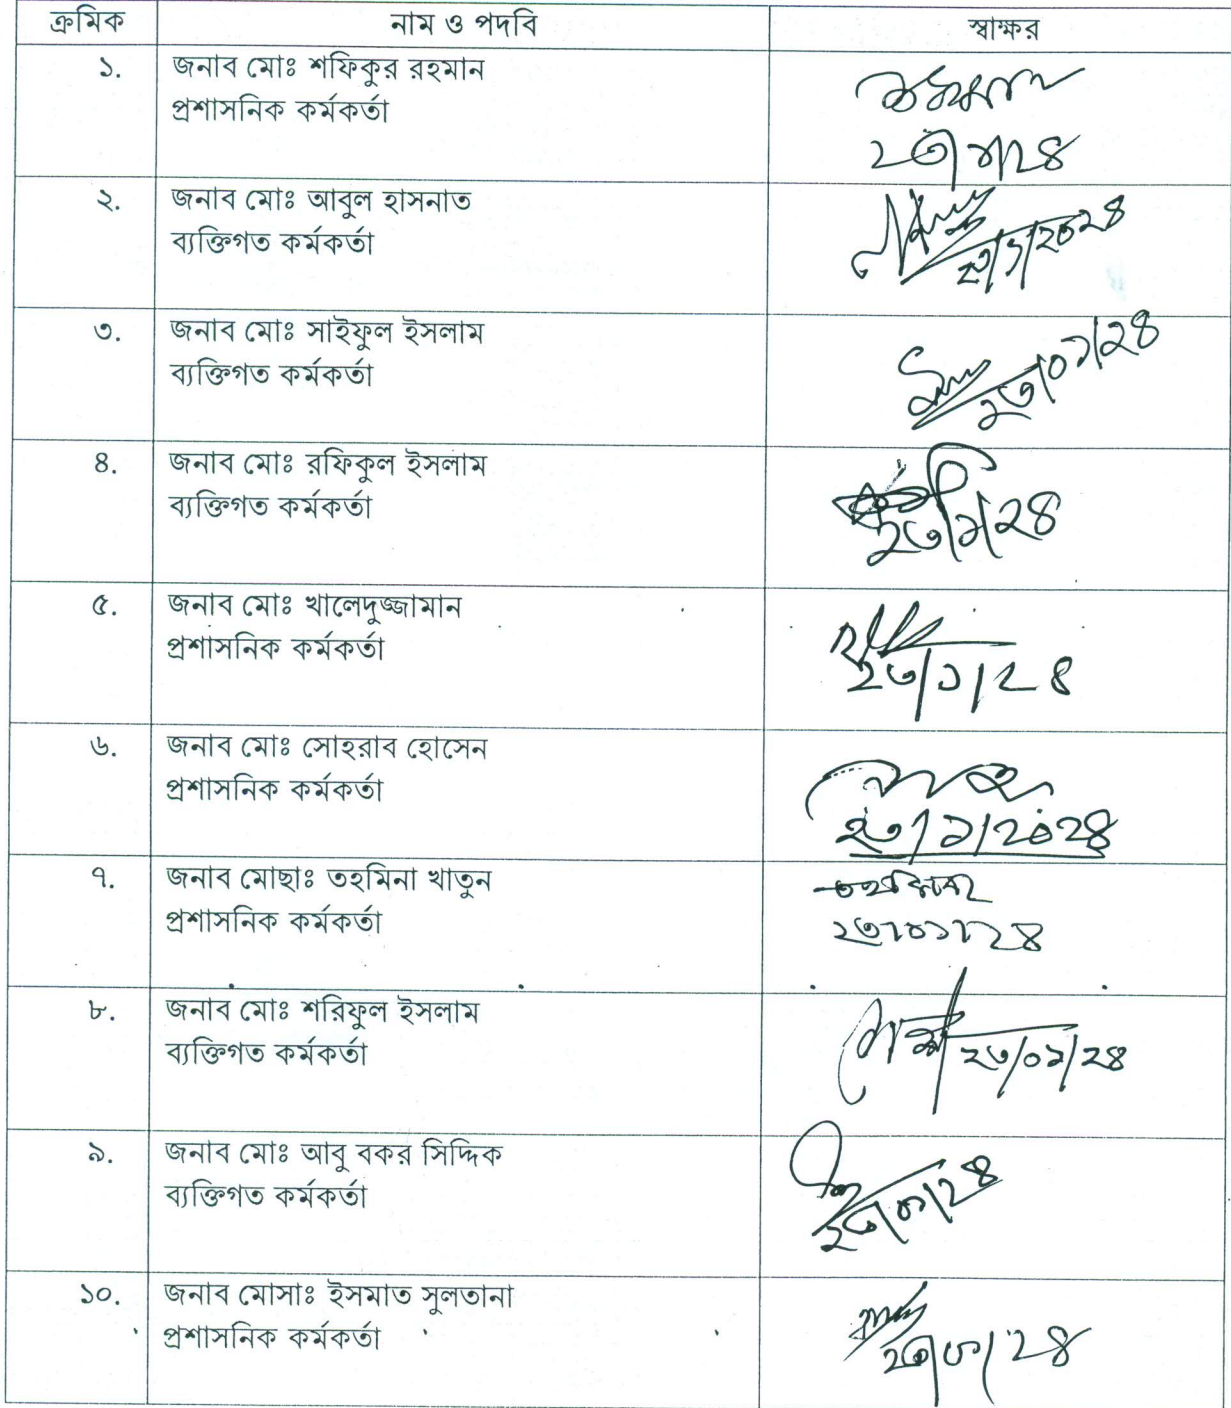 ক্রমিক নাম ও পদবি স্বাক্ষর
১. জনাব মোঃ শফিকুর রহমান
প্রশাসনিক কর্মকর্তা
২৩/১/২৪
২. জনাব মোঃ আবুল হাসনাত
ব্যক্তিগত কর্মকর্তা
২৩/১/২০২৪
৩. জনাব মোঃ সাইফুল ইসলাম
ব্যক্তিগত কর্মকর্তা
২৩/০১/২৪
৪. জনাব মোঃ রফিকুল ইসলাম
ব্যক্তিগত কর্মকর্তা
২৩/১/২৪
৫. জনাব মোঃ খালেদুজ্জামান
প্রশাসনিক কর্মকর্তা
২৩/১/২৪
৬. জনাব মোঃ সোহরাব হোসেন
প্রশাসনিক কর্মকর্তা
২৩/১/২০২৪
৭. জনাব মোছাঃ তহমিনা খাতুন
তহমিনা
প্রশাসনিক কর্মকর্তা
২৩/০১/২৪
৮. জনাব মোঃ শরিফুল ইসলাম
ব্যক্তিগত কর্মকর্তা
২৩/০১/২৪
৯. জনাব মোঃ আবু বকর সিদ্দিক
ব্যক্তিগত কর্মকর্তা
২৩/০১/২৪
১০. জনাব মোসাঃ ইসমাত সুলতানা
প্রশাসনিক কর্মকর্তা
২৩/০১/২৪